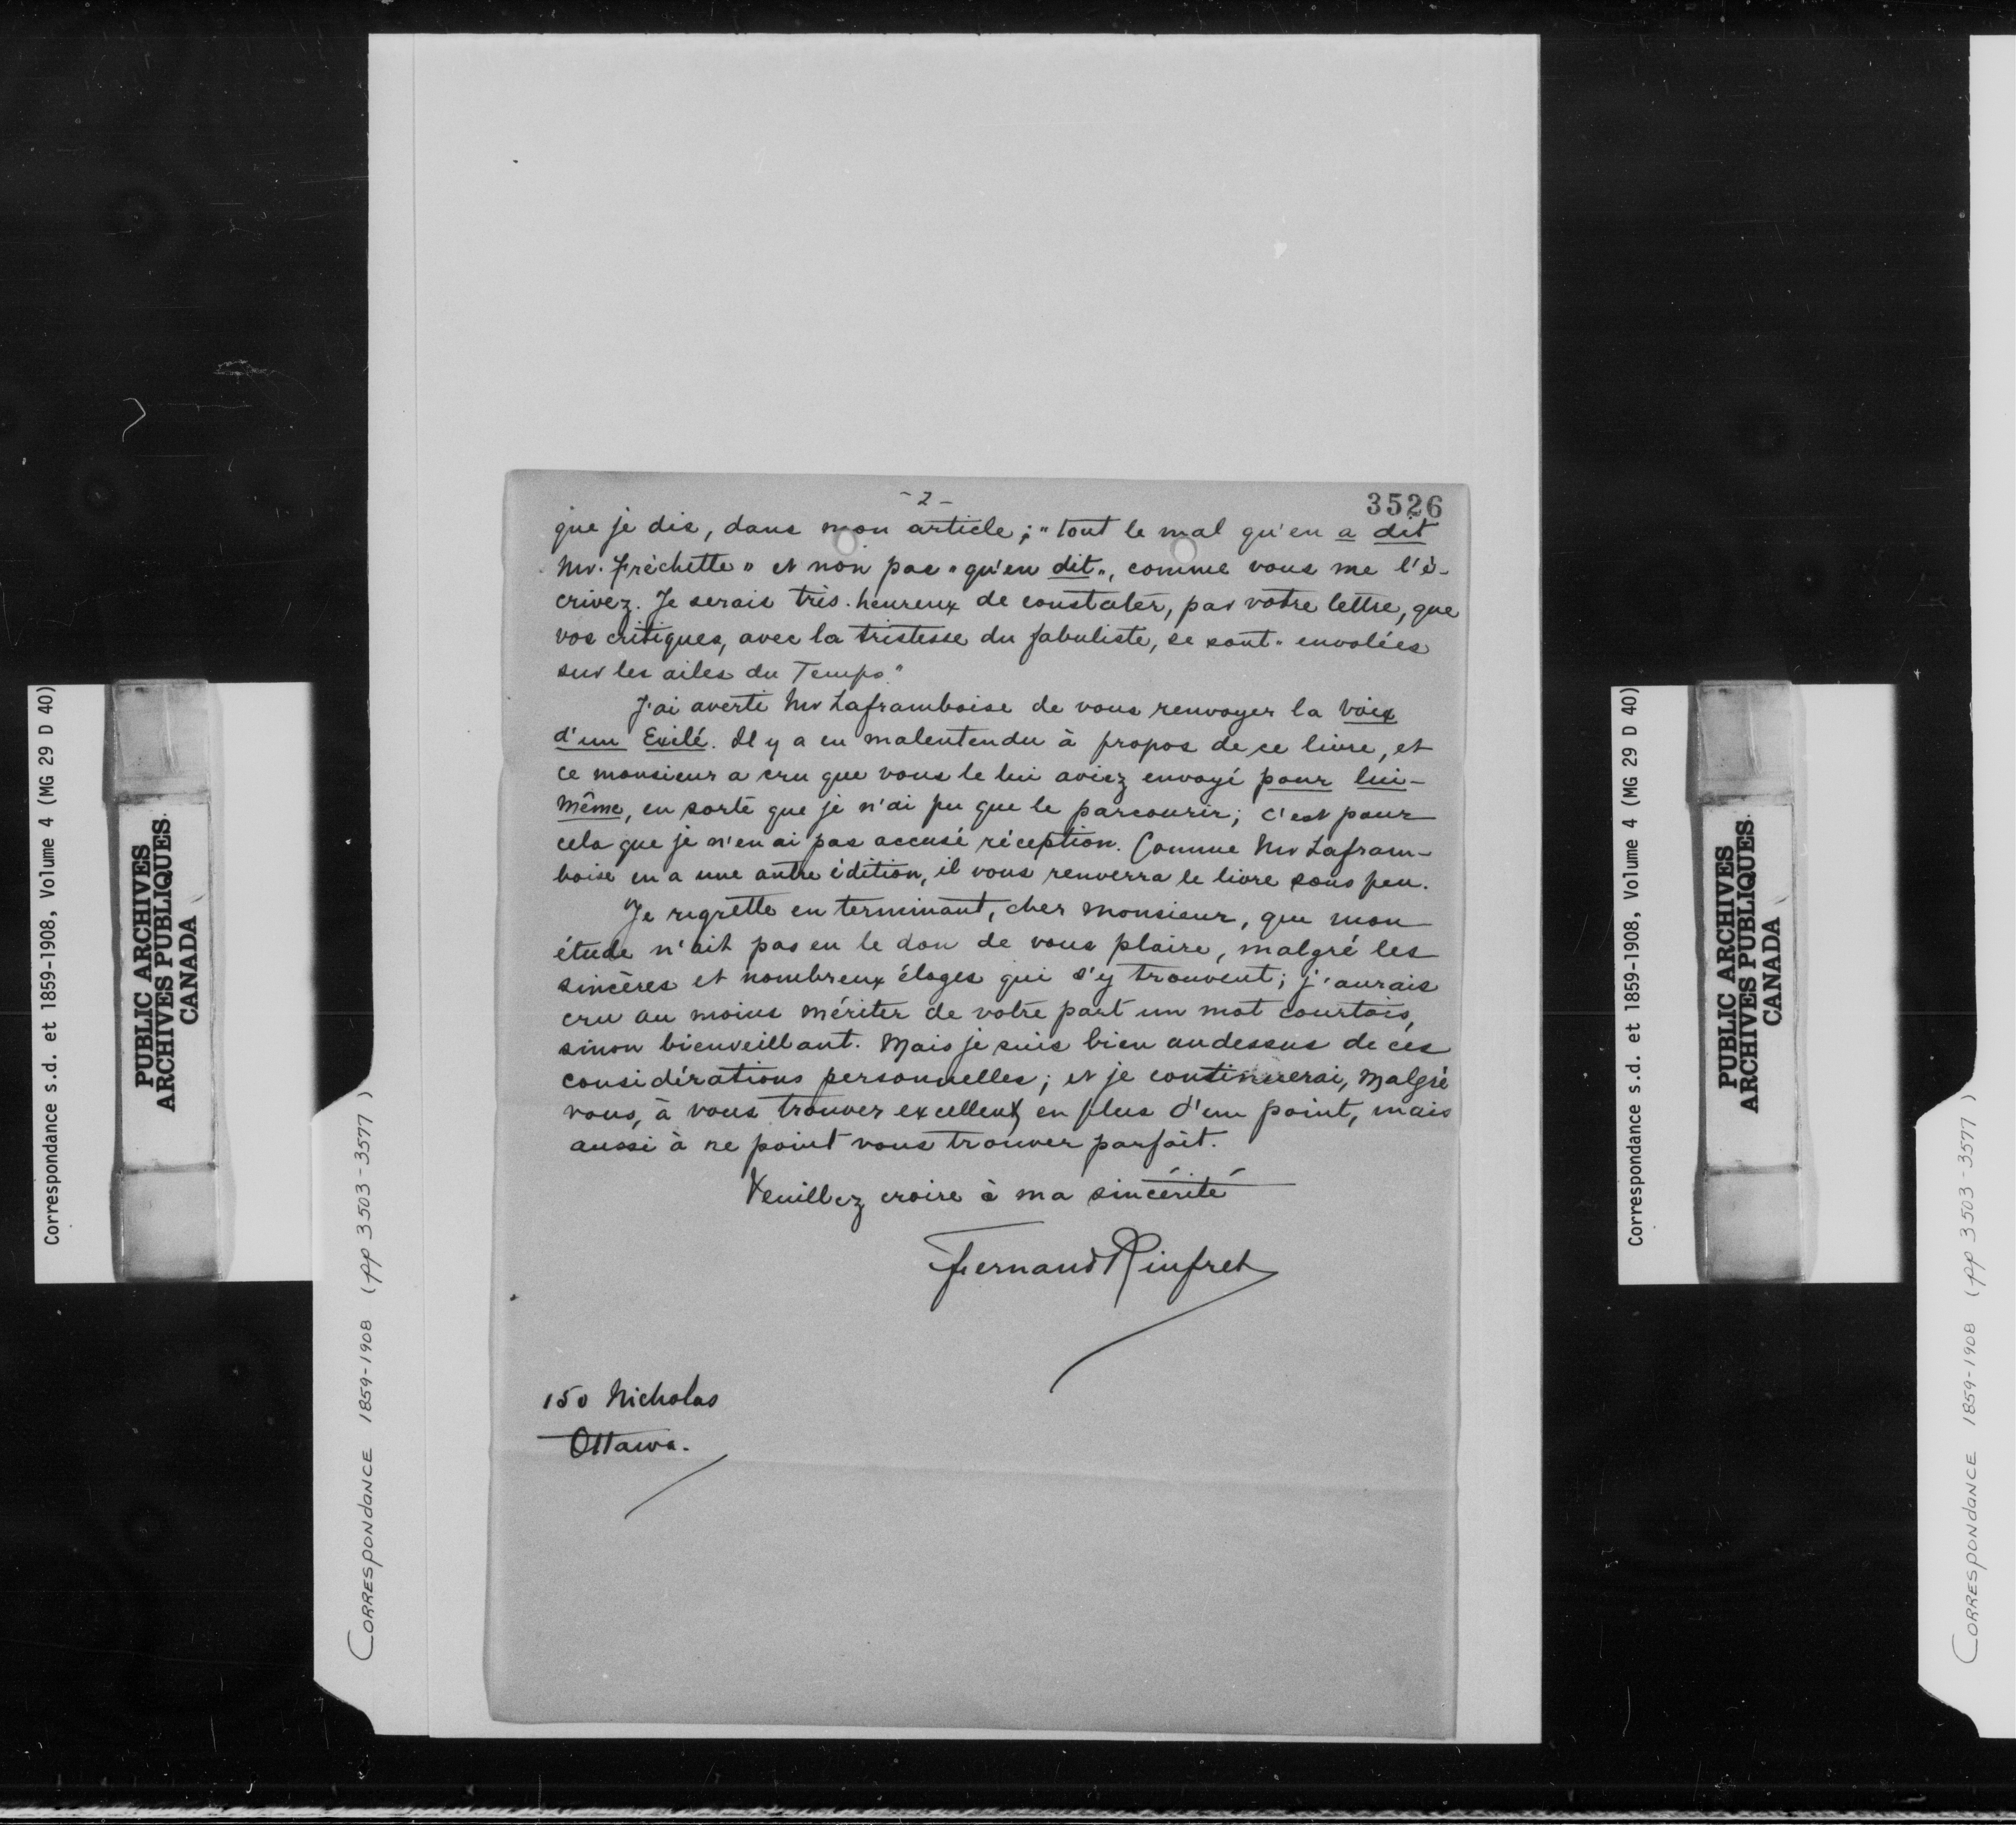 - 2 -
3526
que je dis, dans mon article; "tout le mal qu'en a dit
Mr. Fréchette" et non pas "qu'en dit", comme vous me l'é-
crivez. Je serais très-heureux de constater, par votre lettre, que
vos critiques, avec la tristesse du fabuliste, se sont "envolées
sur les ailes du Temps."
J'ai averti Mr Laframboise de vous renvoyer la Voix
d'un Exilé. Il y a eu malentendu à propos de ce livre, et
ce monsieur a cru que vous le lui aviez envoyé pour lui-
même, en sorte que je n'ai pu que le parcourir; c'est pour
cela que je n'en ai pas accusé réception. Comme Mr Lafram-
boise en a une autre édition, il vous renverra le livre sous peu.
Je regrette en terminant, cher Monsieur, que mon
étude n'ait pas eu le don de vous plaire, malgré les
sincères et nombreux éloges qui s'y trouvent; j'aurais
cru au moins mériter de votre part un mot courtois,
sinon bienveillant. Mais je suis bien audessus de ces
considérations personnelles; et je continuerai, malgré
vous, à vous trouver excellent en plus d'un point, mais
aussi à ne point vous trouver parfait.
Veuillez croire à ma sincérité
Fernand Rinfret
150 Nicholas
Ottawa.
Correspondance s.d. et 1859-1908, Volume 4 (MG 29 D 40)
PUBLIC ARCHIVES
ARCHIVES PUBLIQUES
CANADA
CORRESPONDANCE 1859-1908 (pp 3503-3577)
Correspondance s.d. et 1859-1908, Volume 4 (MG 29 D 40)
PUBLIC ARCHIVES
ARCHIVES PUBLIQUES
CANADA
CORRESPONDANCE 1859-1908 (pp 3503-3577)